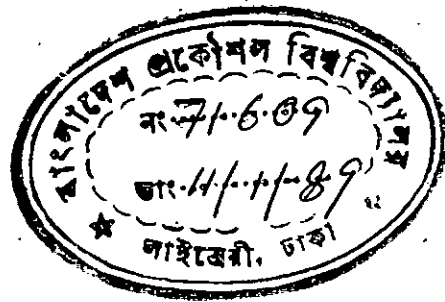 বাংলাদেশ প্রকৌশল বিশ্ববিদ্যালয়
নং 71609
তাং 11/1/89
লাইব্রেরী, ঢাকা